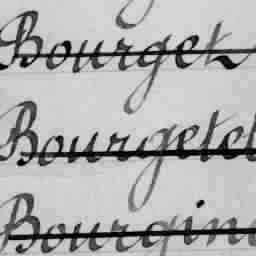 Bourget
Bourgetel
Bourgin